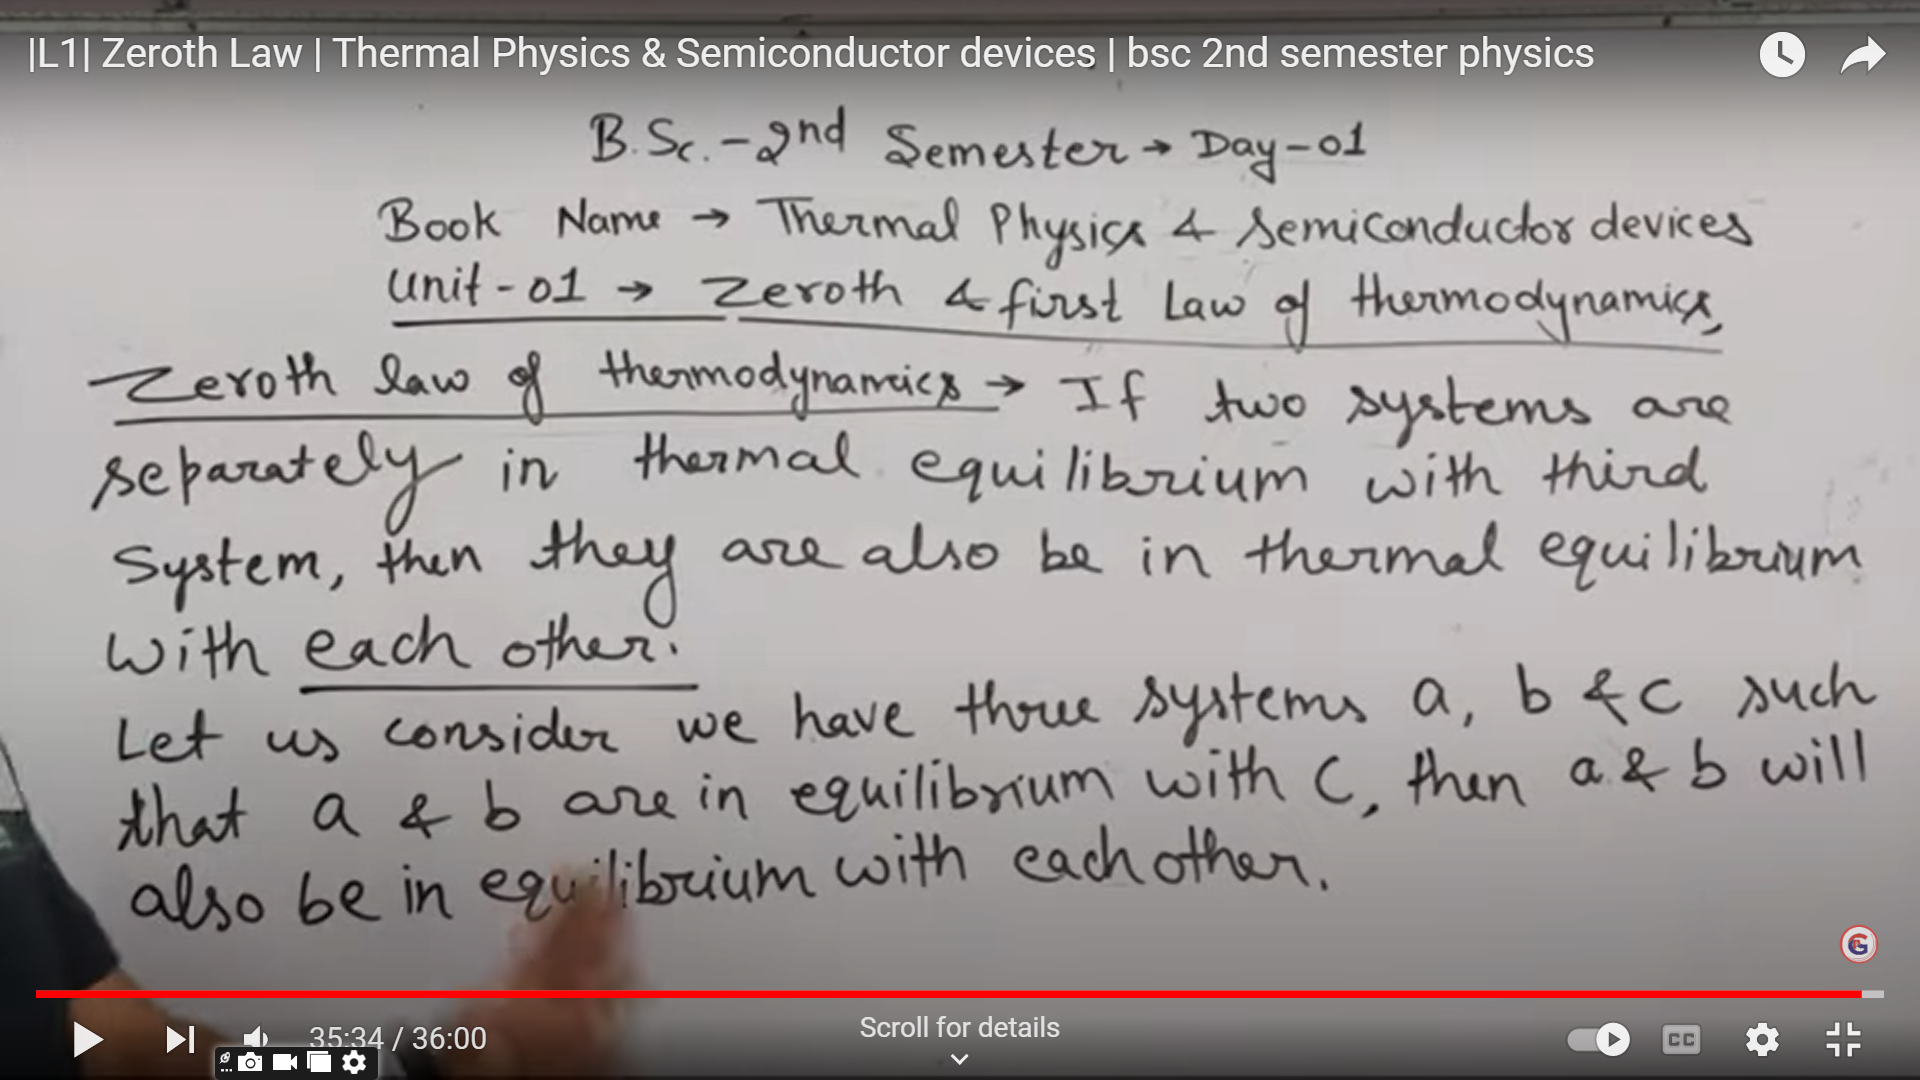 |L1| Zeroth Law | Thermal Physics & Semiconductor devices | bsc 2nd semester physics
B.Sc. - 2nd Semester → Day - 01
Book Name → Thermal Physics & Semiconductor devices
Unit - 01 → Zeroth & first Law of thermodynamics,
Zeroth law of thermodynamics → If two systems are
separately in thermal equilibrium with third
System, then they are also be in thermal equilibrium
with each other.
Let us consider we have three systems a, b & c such
that a & b are in equilibrium with C, then a & b will
also be in equilibrium with each other.
G
35:34 / 36:00
Scroll for details
CC